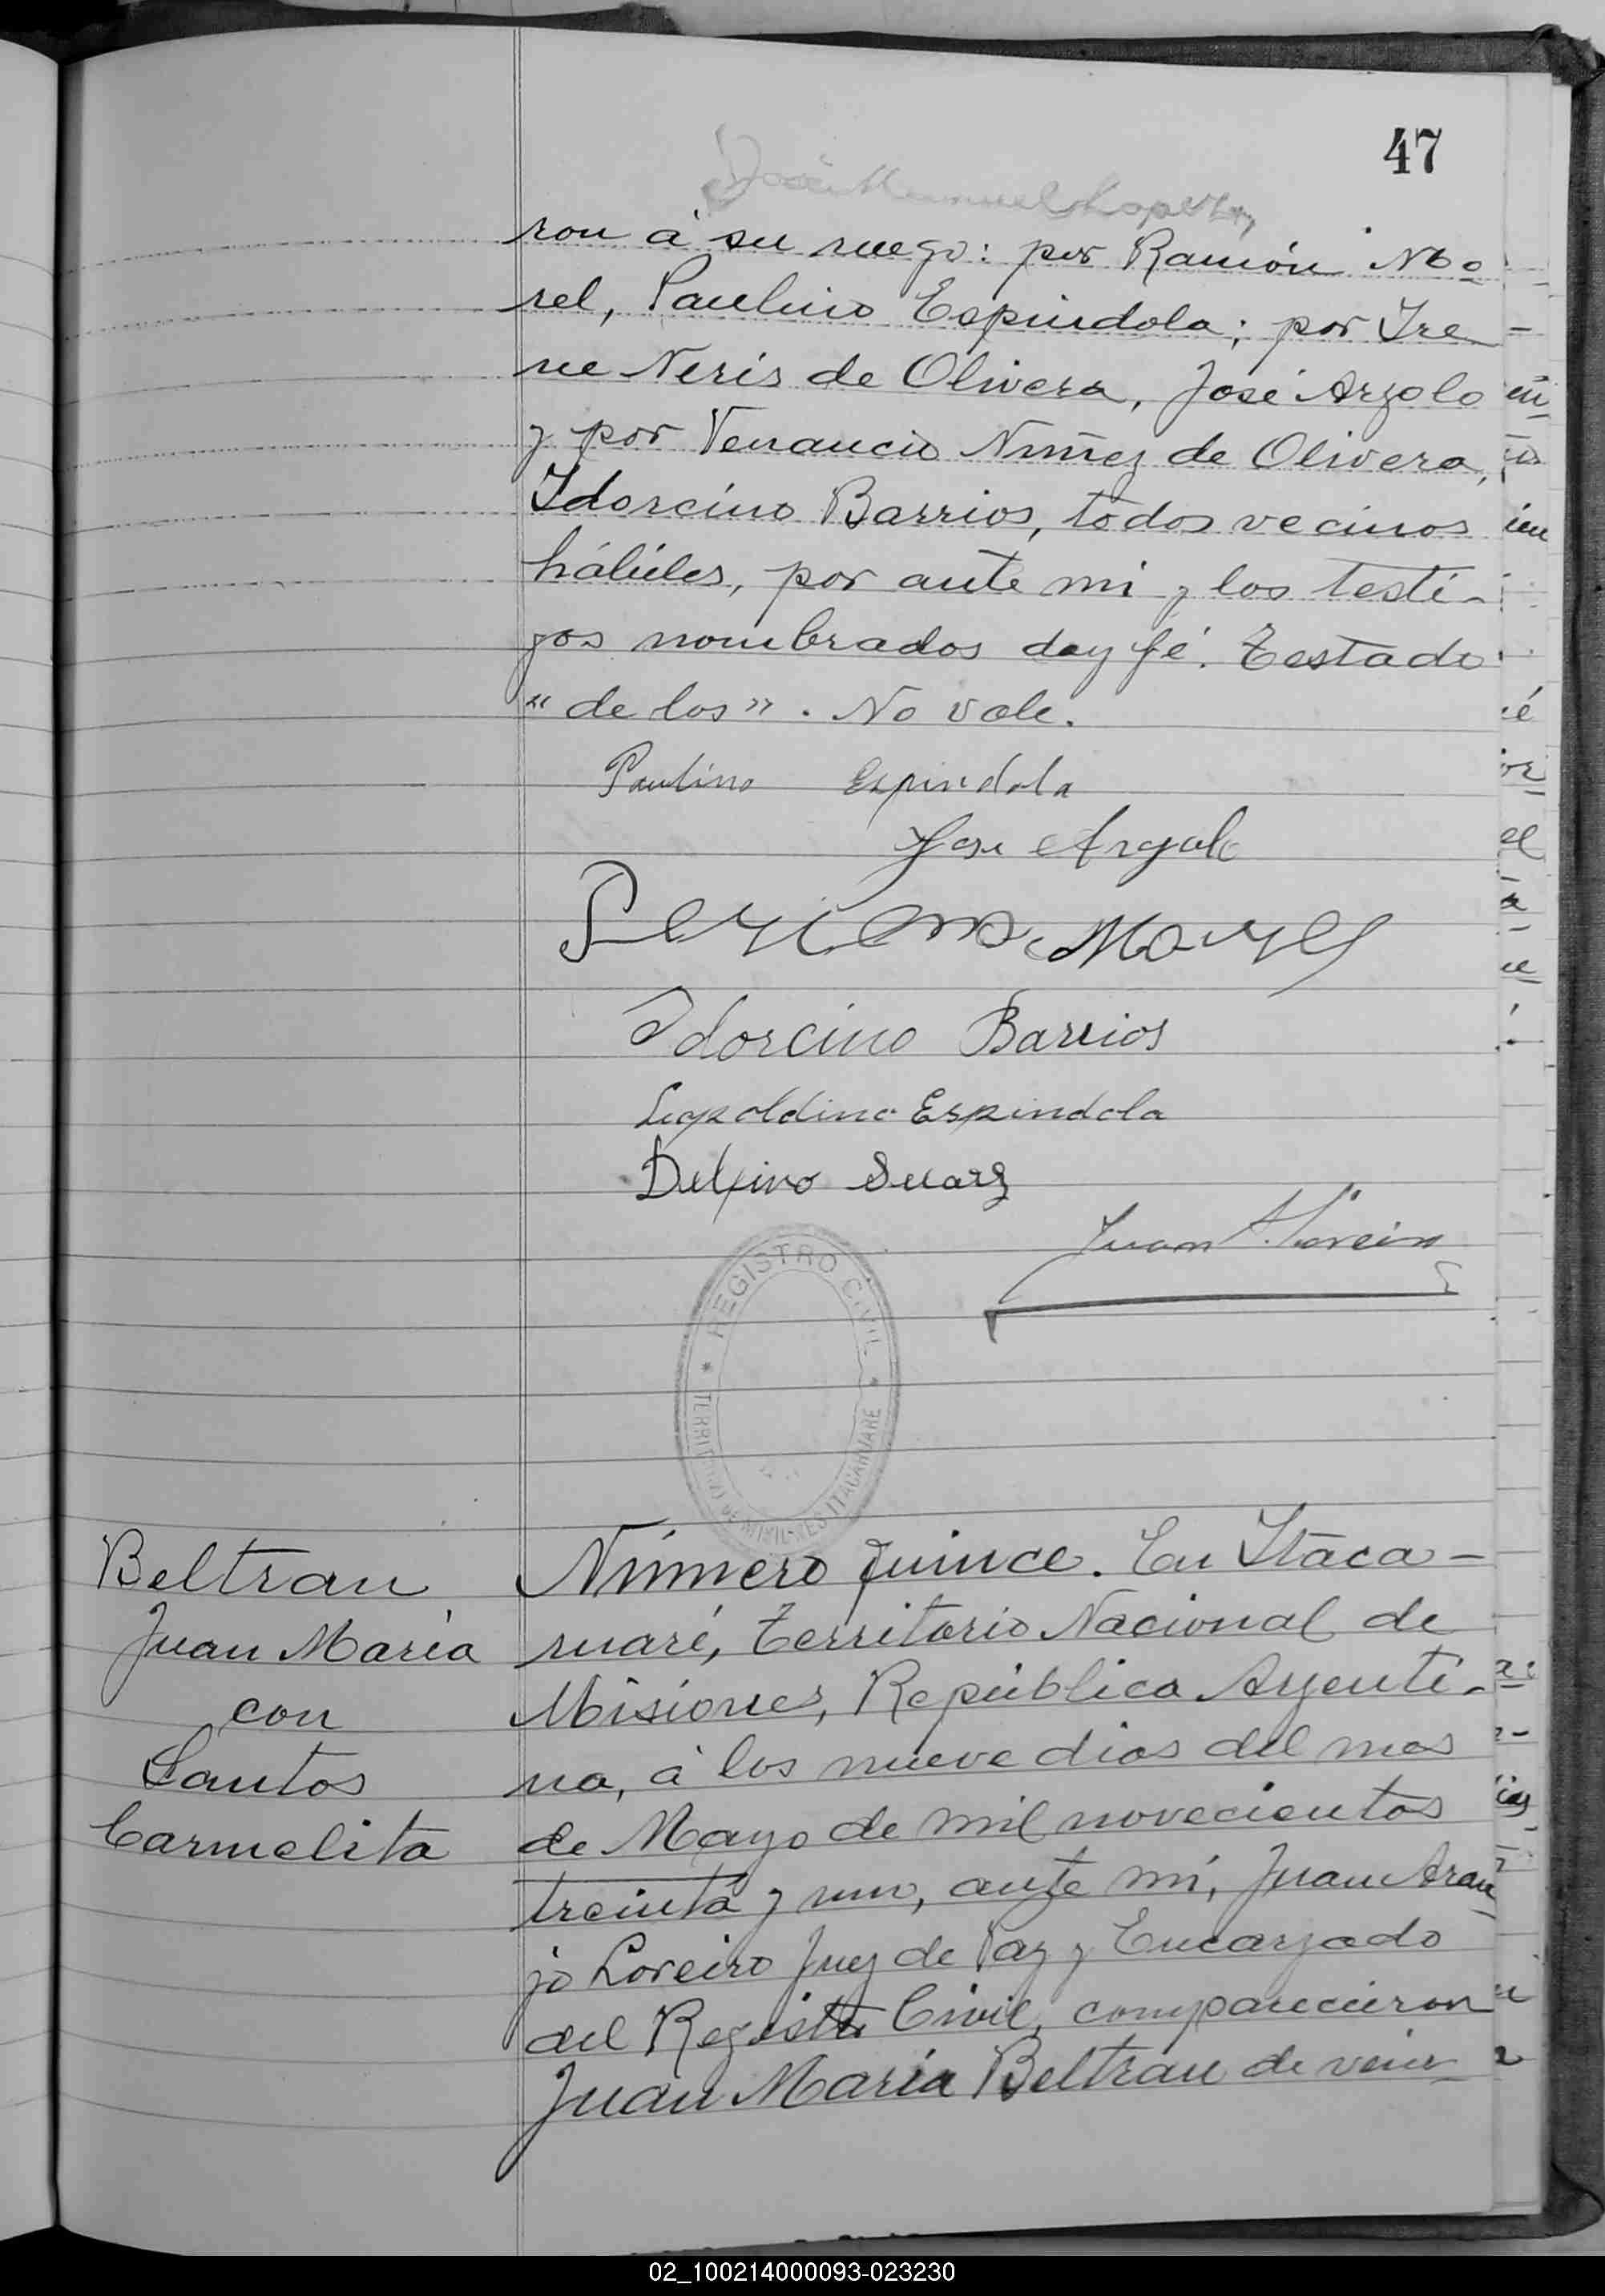 47
ron á su ruego: por Ramón Mo-
rel, Paulino Espindola; por Ire-
ne Neris de Olivera, José Argolo
y por Venancio Nuñez de Olivera,
Idorcino Barrios, todos vecinos
hábiles, por ante mi y los testi-
gos nombrados doy fé. Testado
"de los". No vale.
Paulino Espindola
Jose Argolo
Morel
Idorcino Barrios
Leopoldino Espindola
Delfino Suarz
Juan A. Loreiro
REGISTRO CIVIL
TERRITORIO DE MISIONES ITACARUARE
Beltran
Juan María
con
Santos
Carmelita
Número quince. En Itaca-
ruaré, Territorio Nacional de
Misiones, República Argenti-
na, á los nueve dias del mes
de Mayo de mil novecientos
treinta y uno, ante mi, Juan Arau-
jo Loreiro Juez de Paz y Encargado
del Registro Civil, comparecieron
Juan María Beltran de vein-
02_100214000093-023230